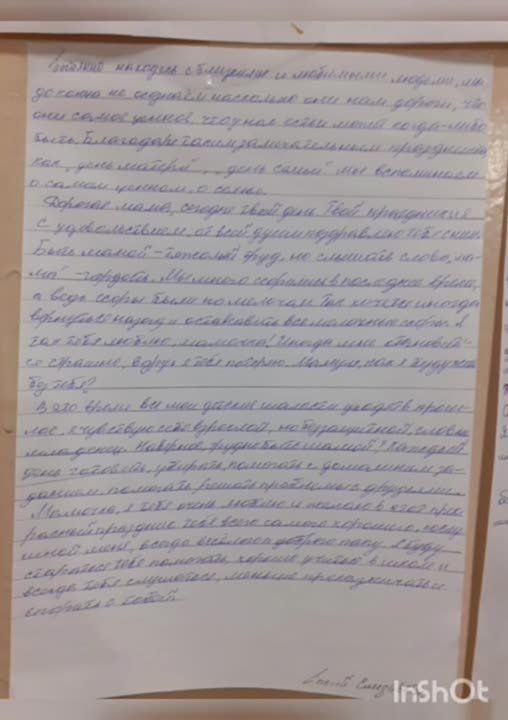 находясь с близкими и любимыми людьми, мы
до конца не осознаём насколько они нам дороги, что
они самое ценное, что у нас есть и может когда-либо
быть. Благодаря таким замечательным праздникам
как „день матери", „день семьи" мы вспоминаем
о самом ценном, о семье.
Дорогая мама, сегодня твой день. Твой праздник и я
с удовольствием, от всей души поздравляю тебя с ним.
Быть мамой - тяжёлый труд, но слышать слово „ма-
ма" - гордость. Мы много ссорились в последнее время,
а ведь ссоры были по мелочам. Так хочется иногда
вернуться назад и остановить все мелочные ссоры. Я
так тебя люблю, мамочка! Иногда мне становит-
ся страшно, вдруг я тебя потеряю. Мамуля, как я буду жить
без тебя?
В это время все мои детские шалости уходят в прош-
лое, я чувствую себя взрослой, но беззащитной, словно
младенец. Наверное, трудно быть мамой? Каждый
день готовить, убирать, помогать с домашним за-
данием, помогать решать проблемы с друзьями.
Мамочка, я тебя очень люблю и желаю в этот прек-
расный праздник тебе всего самого хорошего, послу
шной меня, всегда весёлого доброго папу. Я буду
стараться тебе помогать, хорошо учиться в школе и
всегда тебя слушаться, меньше проказничать и
спорить с тобой.
InShOt